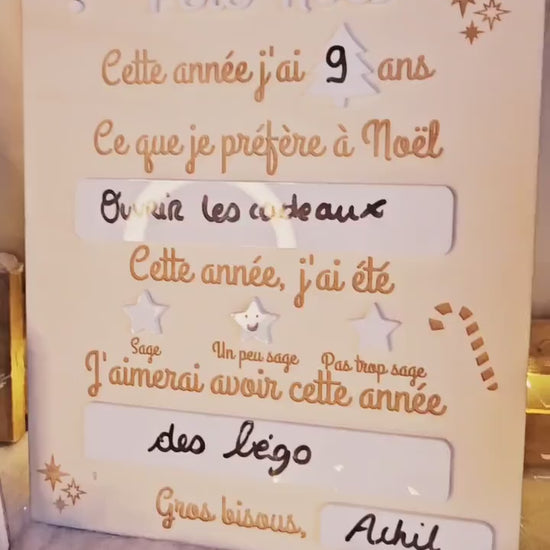 Cette année j'ai 9 ans
Ce que je préfère à Noël
Ouvrir les cadeaux
Cette année, j'ai été
Sage Un peu sage Pas trop sage
J'aimerai avoir cette année
des légo
Gros bisous, Achil